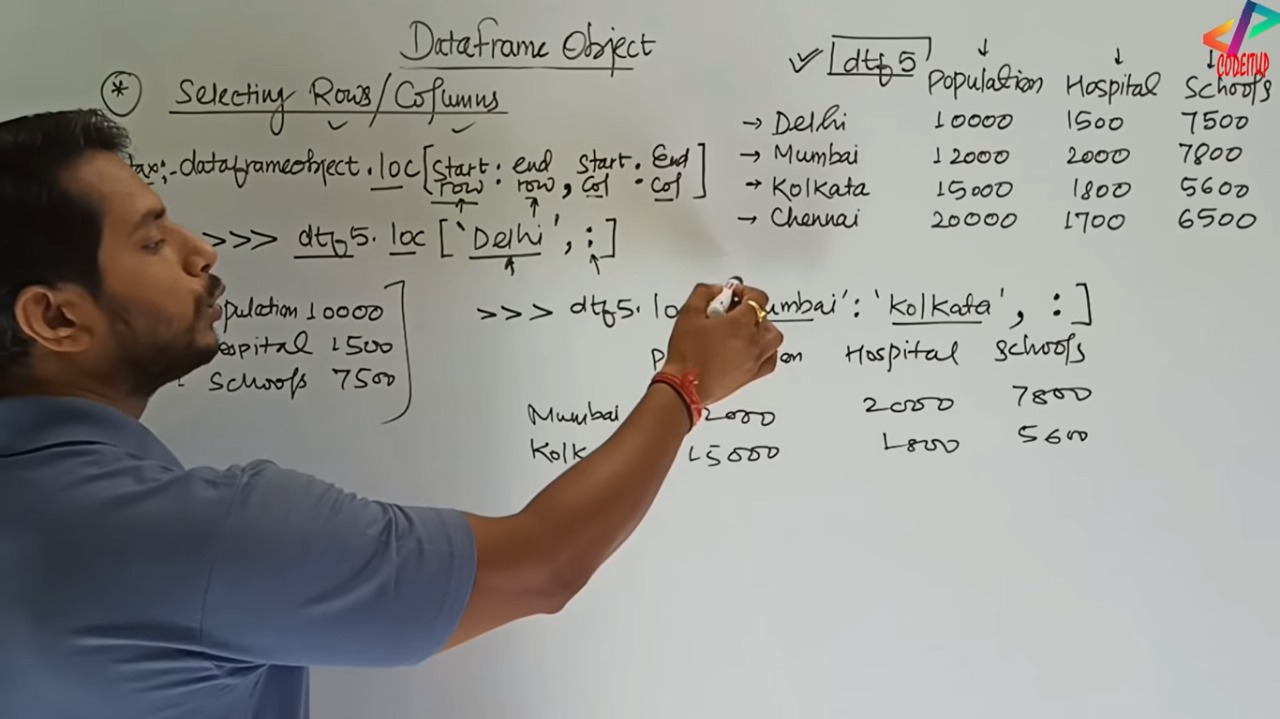 Dataframe Object
* Selecting Rows/Columns
dataframeobject.loc[start row : end row, start col : End col]
>>> dtf5.loc ['Delhi', :]
10000
1500
Schools 7500
✓ dtf5
Population Hospital Schools
→ Delhi 10000 1500 7500
→ Mumbai 12000 2000 7800
→ Kolkata 15000 1800 5600
→ Chennai 20000 1700 6500
>>> dtf5. : 'Kolkata', :]
Hospital Schools
Mumbai 2000 7800
15000 1800 5600
CODEITUP